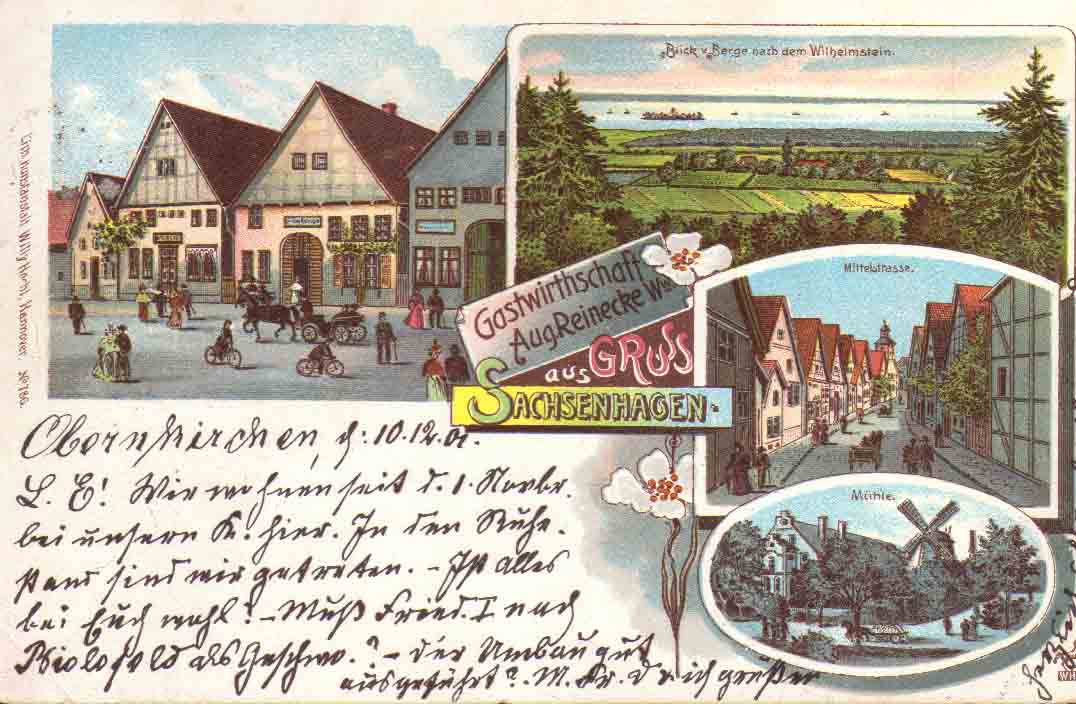 Blick v. Berge nach dem Wilhelmstein.
Gastwirthschaft
Aug. Reinecke Wwe
aus GRUSS
SACHSENHAGEN.
Mittelstrasse.
Mühle.
Kunstanstalt Willy Hannover. No 786.
Obernkirchen, d. 10.12.01.
L. E! Wir wohnen seit d. 1. Novbr.
bei unsern K. hier. In den Ruhe-
stand sind wir getreten. - Ist alles
bei Euch wohl? - Muß Fried. I nach
Bielefeld als Geschwo.? - der Umbau gut
ausgeführt? M. Fr. u ich grüßen